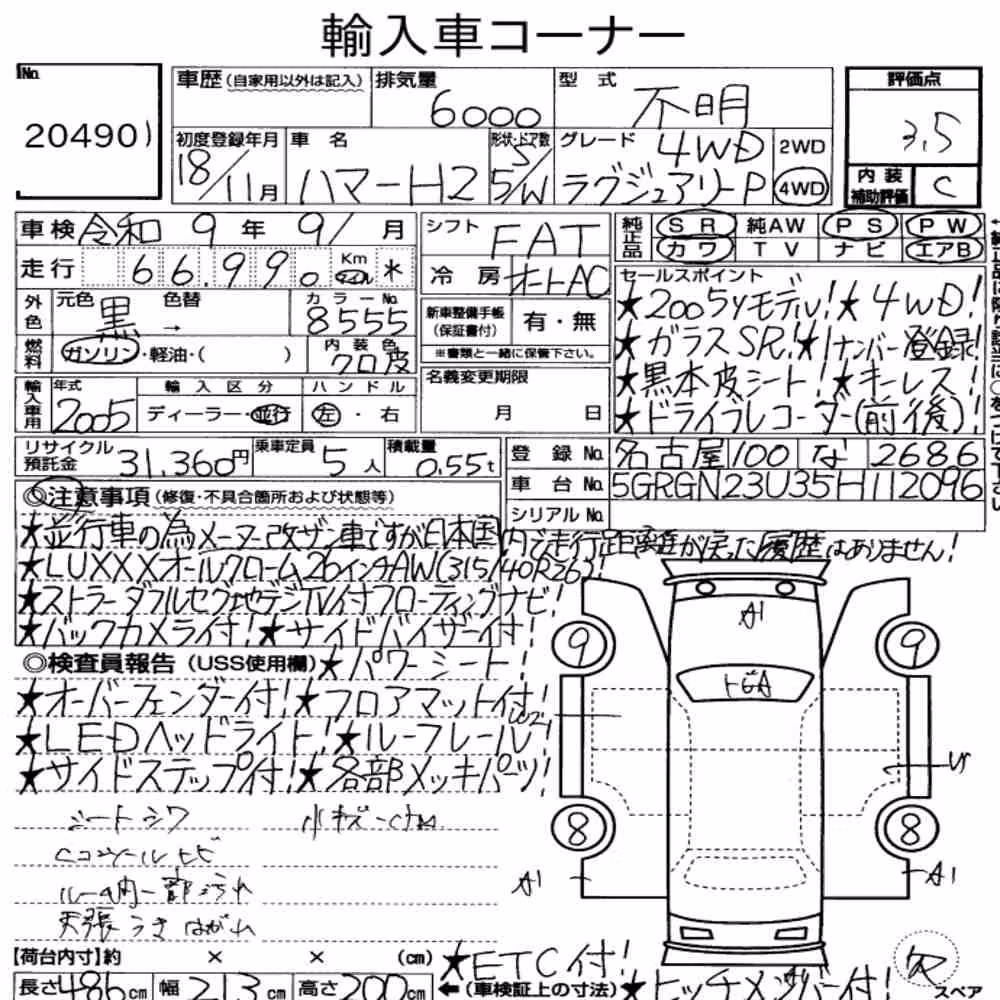 輸入車コーナー
No. 20490
車歴(自家用以外は記入)
排気量 6000
型式 不明
評価点 3.5
初度登録年月 18/11月
車名 ハマーH2
形状・ドア数 5/W
グレード 4WD ラグジュアリーP
2WD 4WD
内装補助評価 C
車検 令和 9年 9/月
走行 66.990 Km マイル *
シフト FAT
冷房 オートAC
純正品 SR 純AW PS PW
カワ TV ナビ エアB
外色 元色 黒 → 色替 カラーNo. 8555
燃料 ガソリン・軽油・( ) 内装色 クロ皮
新車整備手帳(保証書付) 有・無
※書類と一緒に保管下さい。
セールスポイント
★2005yモデル!★4WD!
★ガラスSR!★1ナンバー登録!
★黒本皮シート!★キーレス!
★ドライブレコーダー(前後)!
輸入車用 年式 2005 輸入区分 ディーラー・並行 ハンドル 左・右
名義変更期限 月 日
リサイクル預託金 31,360円 乗車定員 5人 積載量 0.55t
登録No. 名古屋100 な 2686
車台No. 5GRGN23U35H112096
シリアルNo.
◎注意事項(修復・不具合箇所および状態等)
★並行車の為メーター改ザン車ですが日本国内で走行距離が戻った履歴はありません!
★LUXXXオールクローム26インチAW(315/40R26)!
★ストラーダフルセグ地デジTV付フローティングナビ!
★バックカメラ付!★サイドバイザー付!
◎検査員報告(USS使用欄)★パワーシート!
★オーバーフェンダー付!★フロアマット付!
★LEDヘッドライト!★ルーフレール!
★サイドステップ付!★各部メッキパーツ!
シートシワ
Cコンソールヒビ
ルーム内一部汚れ
天張うきはがれ
A1
トビA
9 9
8 8
A1 A1
【荷台内寸】約 × × (cm)
長さ486cm 幅213cm 高さ200cm
★ETC付!
←(車検証上の寸法)★ヒッチメンバー付!
スペア